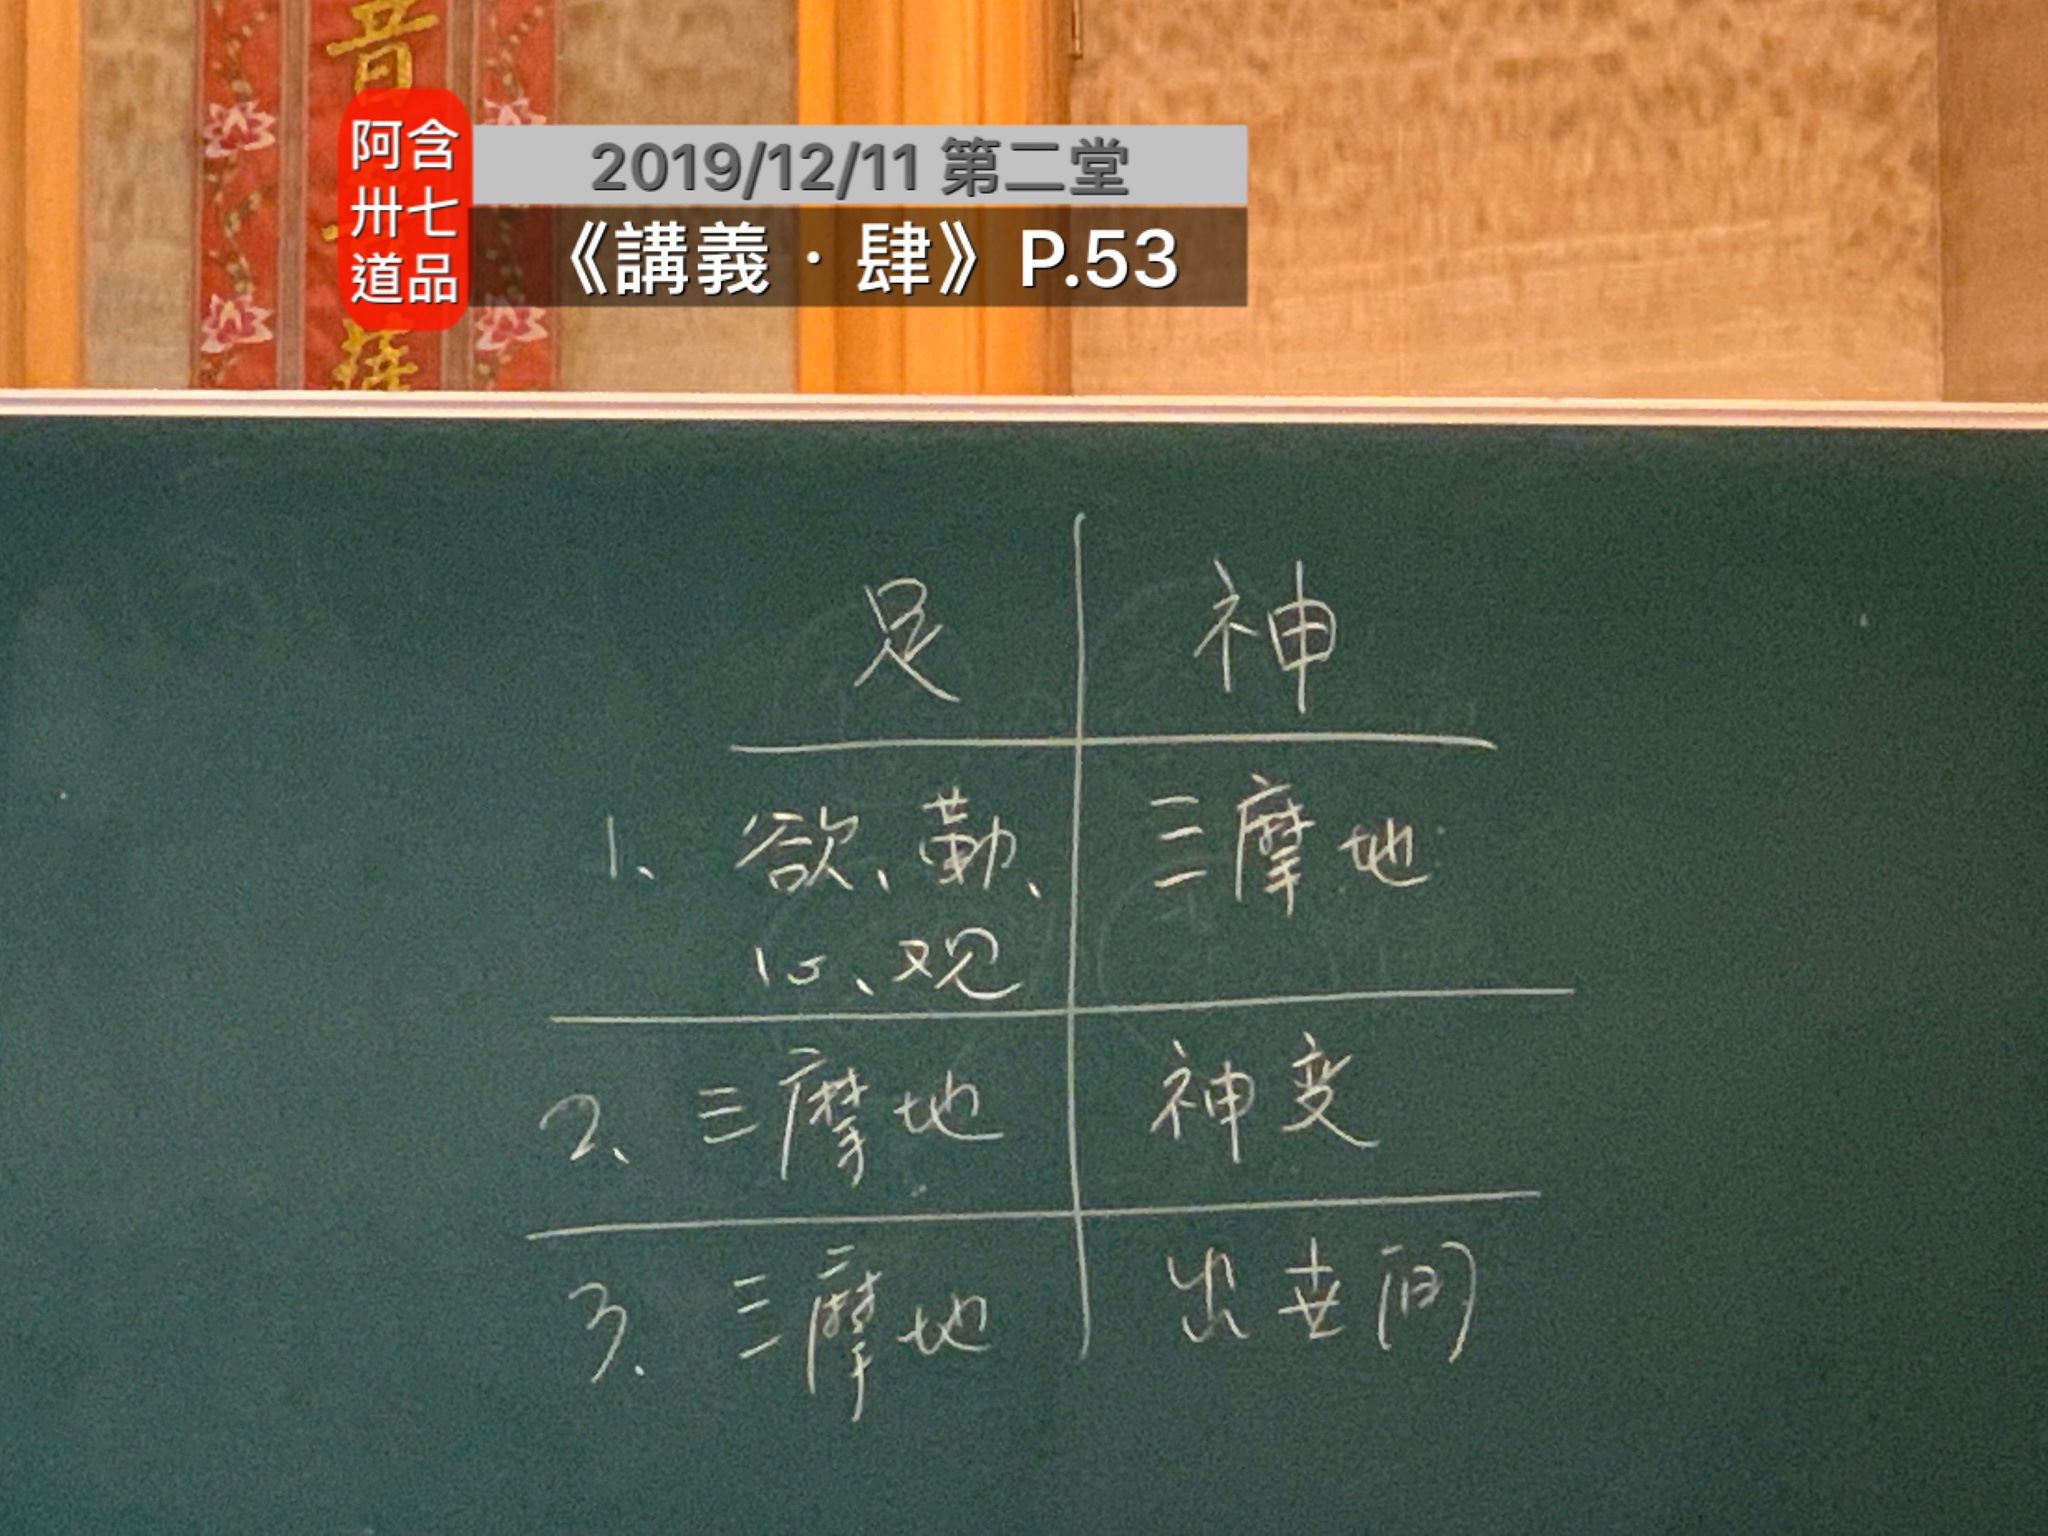 音
阿含
卅七
道品
2019/12/11 第二堂
《講義·肆》P.53
足 神
1、欲、勤、 三摩地
心、观
2、三摩地 神变
3. 三摩地 出世间